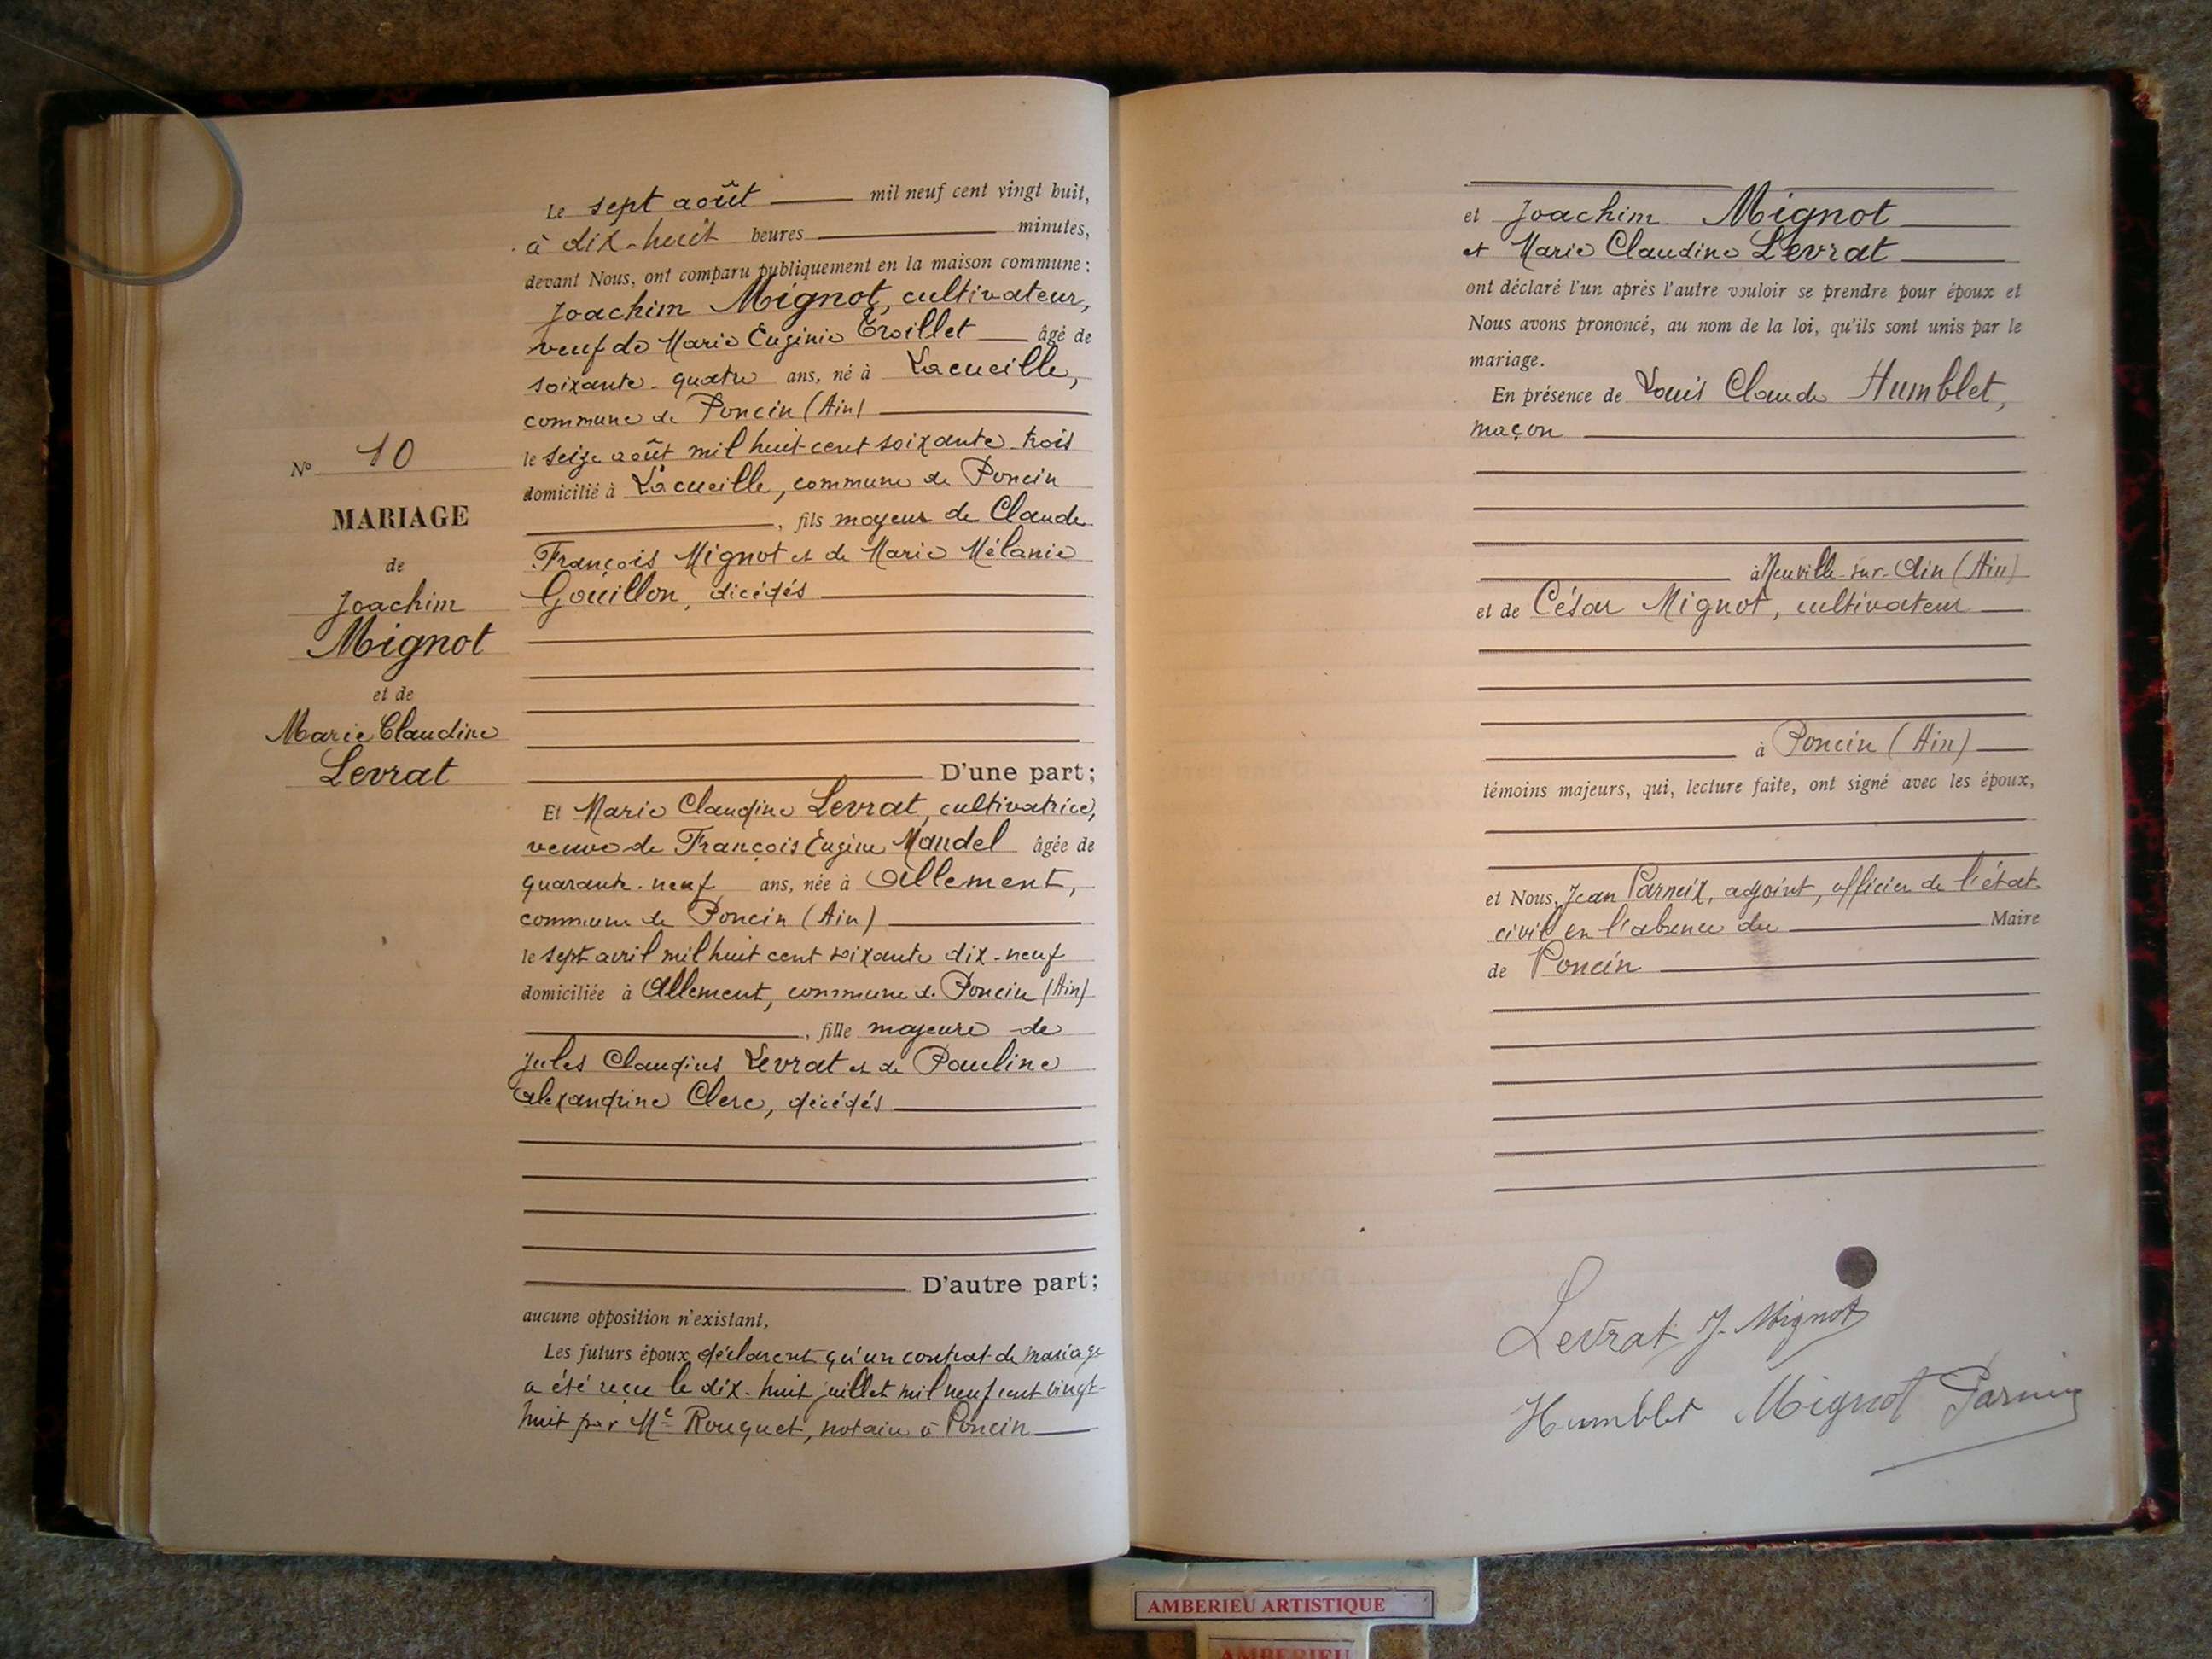 Le sept août mil neuf cent vingt huit,
à dix-huit heures minutes,
devant Nous, ont comparu publiquement en la maison commune :
Joachim Mignot, cultivateur,
veuf de Marie Eugénie Troillet âgé de
soixante-quatre ans, né à Lacueille,
commune de Poncin (Ain)
le seize août mil huit cent soixante-trois
domicilié à Lacueille, commune de Poncin
, fils majeur de Claude
François Mignot et de Marie Mélanie
Gouillon, décédés
D'une part;
Et Marie Claudine Levrat, cultivatrice,
veuve de François Eugène Mandel âgée de
quarante-neuf ans, née à Allement,
commune de Poncin (Ain)
le sept avril mil huit cent soixante dix-neuf
domiciliée à Allement, commune de Poncin (Ain)
, fille majeure de
Jules Claudius Levrat et de Pauline
Alexandrine Clerc, décédés
D'autre part;
aucune opposition n'existant,
Les futurs époux déclarent qu'un contrat de mariage
a été reçu le dix-huit juillet mil neuf cent vingt-
huit par Me Rouquet, notaire à Poncin
No 10
MARIAGE
de
Joachim
Mignot
et de
Marie Claudine
Levrat
et Joachim Mignot
et Marie Claudine Levrat
ont déclaré l'un après l'autre vouloir se prendre pour époux et
Nous avons prononcé, au nom de la loi, qu'ils sont unis par le
mariage.
En présence de Louis Claude Humblet,
maçon
à Neuville-sur-Ain (Ain)
et de César Mignot, cultivateur
à Poncin (Ain)
témoins majeurs, qui, lecture faite, ont signé avec les époux,
et Nous, Jean Parneix, adjoint, officier de l'état-
civil en l'absence du Maire
de Poncin
Levrat J. Mignot
Humblet Mignot Parneix
AMBERIEU ARTISTIQUE
AMBERIEU